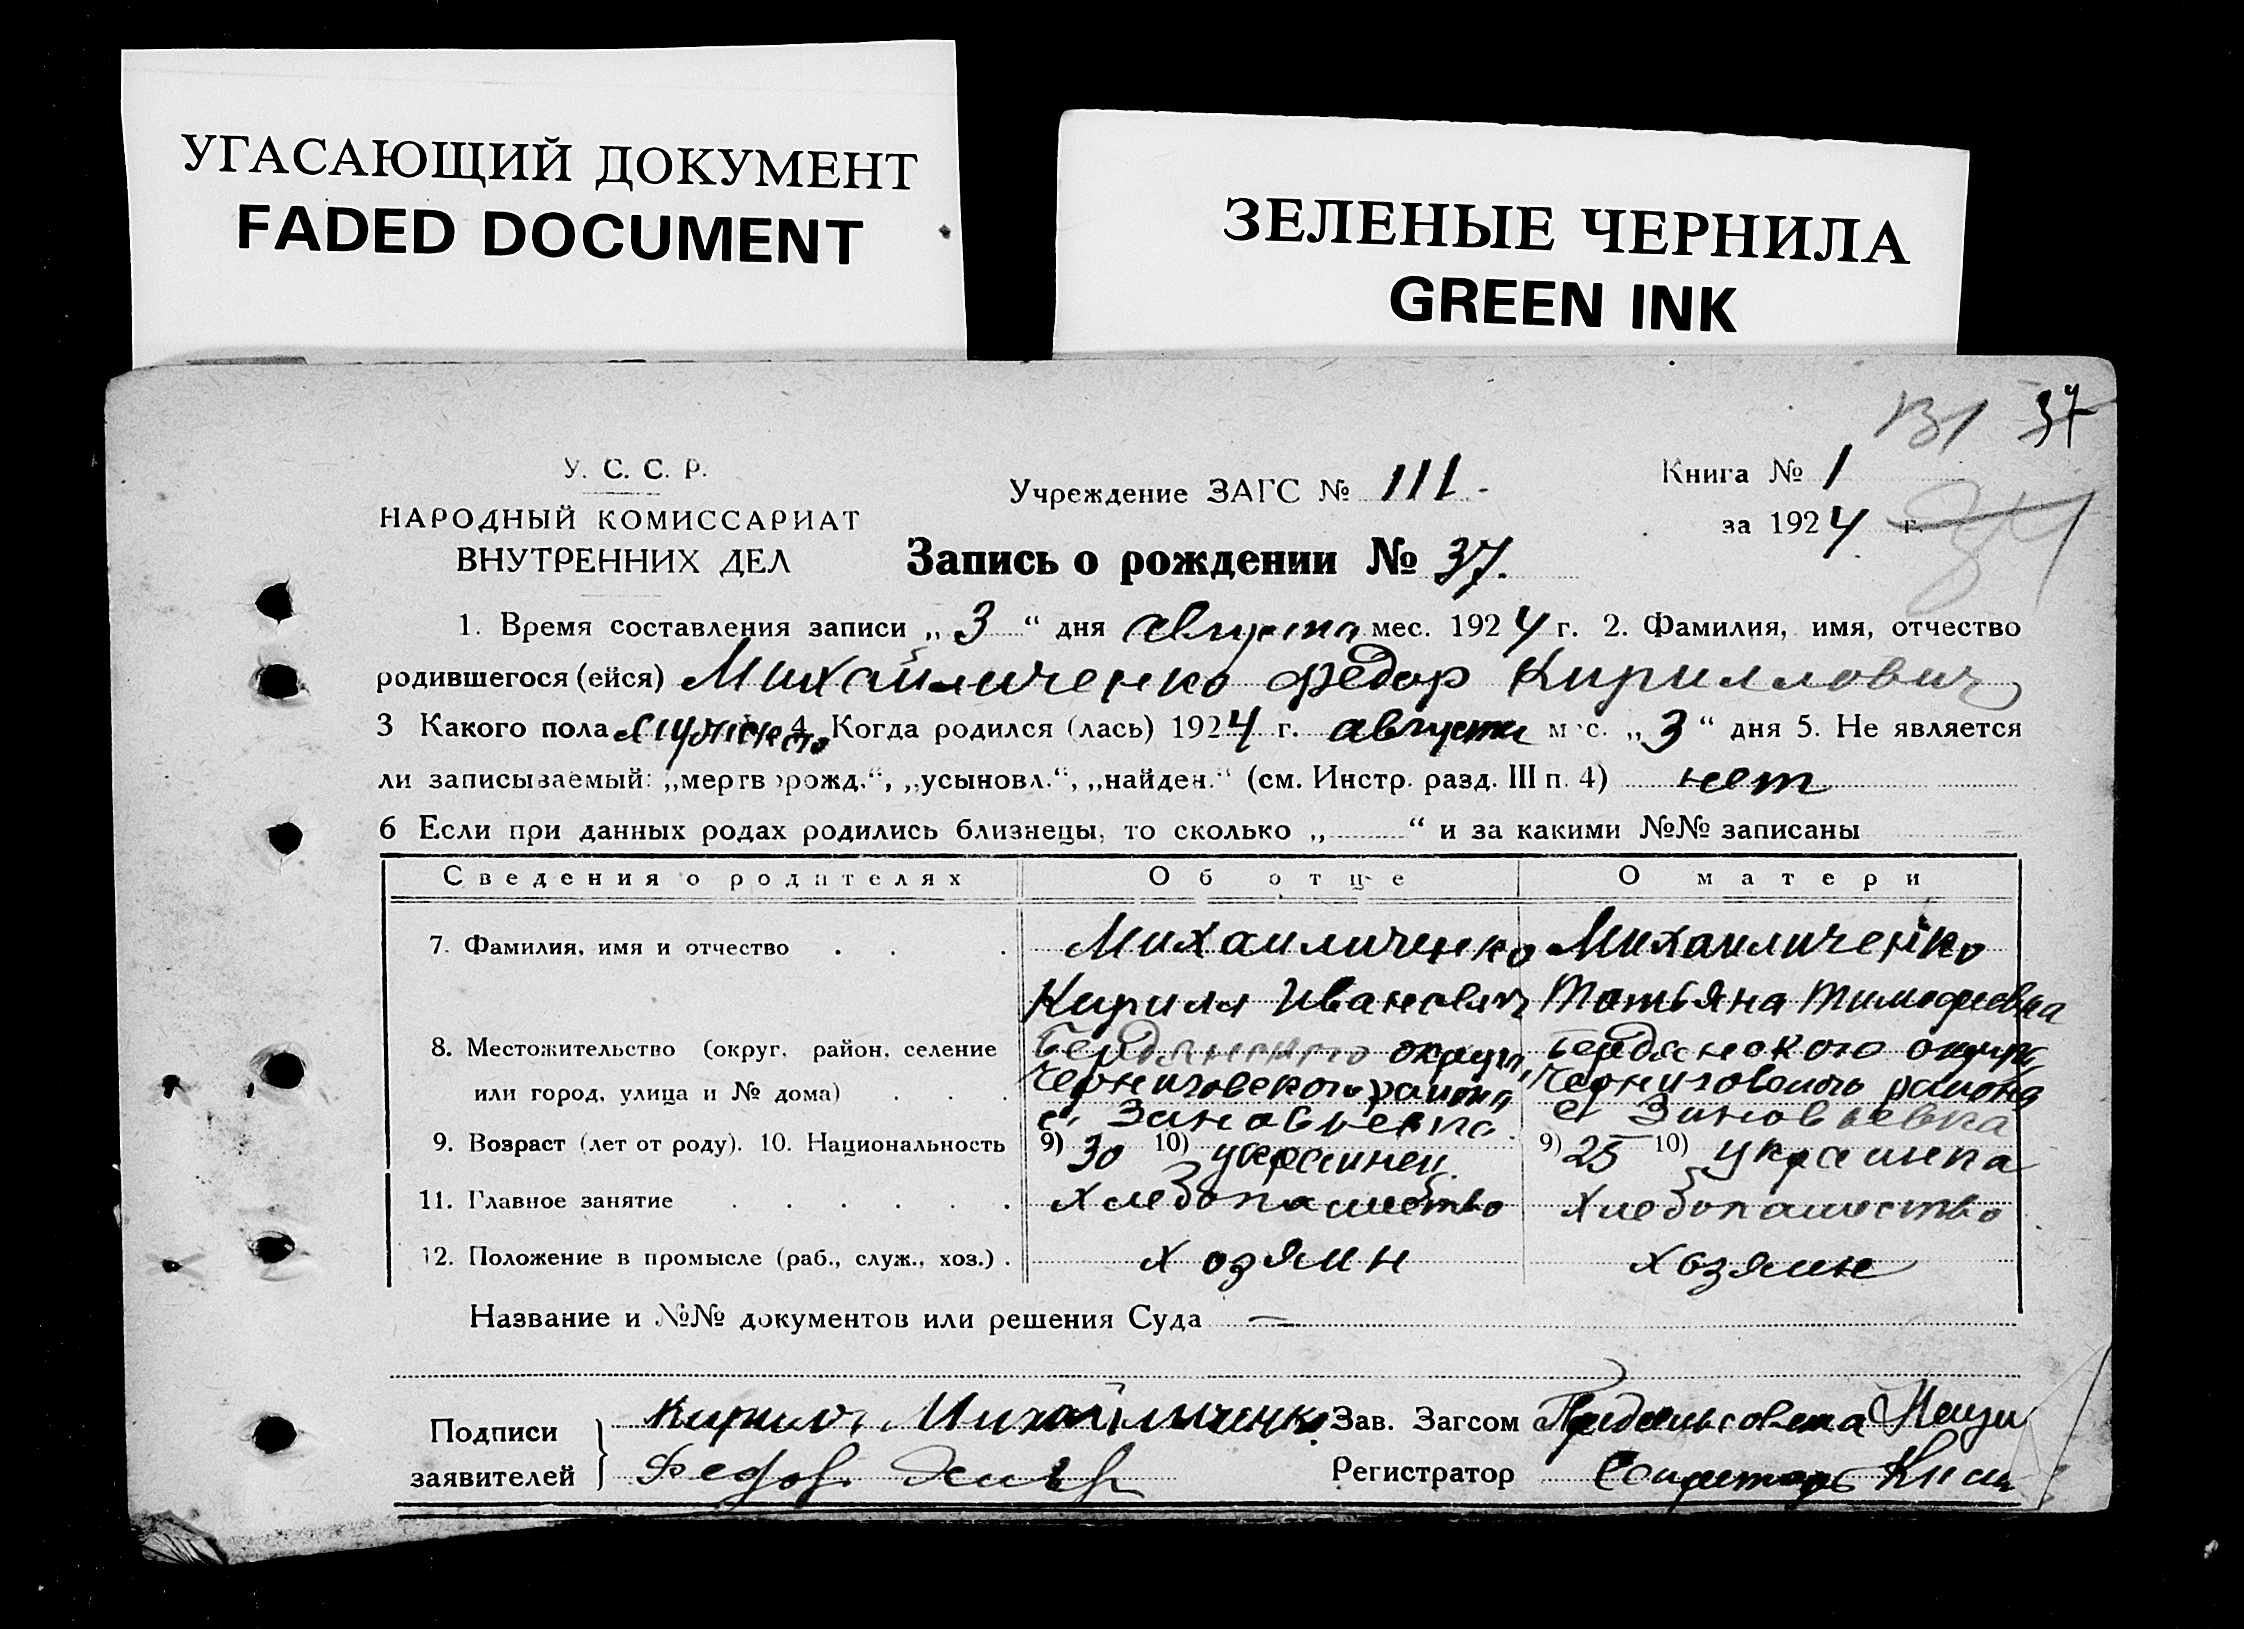 УГАСАЮЩИЙ ДОКУМЕНТ
FADED DOCUMENT
ЗЕЛЕНЫЕ ЧЕРНИЛА
GREEN INK
131 37
У. С. С. Р.
НАРОДНЫЙ КОМИССАРИАТ
ВНУТРЕННИХ ДЕЛ
Учреждение ЗАГС № 111.
Книга № 1
за 1924 г.
Запись о рождении № 37.
1. Время составления записи „ 3 “ дня августа мес. 1924 г. 2. Фамилия, имя, отчество
родившегося (ейся) Михайличенко Федор Кириллович
3 Какого пола мужского 4. Когда родился (лась) 1924 г. августа мес. „ 3 “ дня 5. Не является
ли записываемый: „мертворожд.“, „усыновл.“, „найден.“ (см. Инстр. разд. III п. 4) нет
6 Если при данных родах родились близнецы, то сколько „ “ и за какими №№ записаны
Сведения о родителях Об отце О матери
7. Фамилия, имя и отчество Михаиличенко Михаиличенко
Кирилл Иванович Татьяна Тимофеевна
8. Местожительство (округ, район, селение Бердянского округа, Бердянского округа
или город, улица и № дома) Черниговского района Черниговского района
с. Зиновьевка с. Зиновьевка
9. Возраст (лет от роду). 10. Национальность 9) 30 10) украинец 9) 25 10) украинка
11. Главное занятие хлебопашество хлебопашество
12. Положение в промысле (раб., служ., хоз.) хозяин хозяин
Название и №№ документов или решения Суда —
Подписи
заявителей
Кирило Михайличенко
Федор
Зав. Загсом Предсельсовета
Регистратор Секретарь